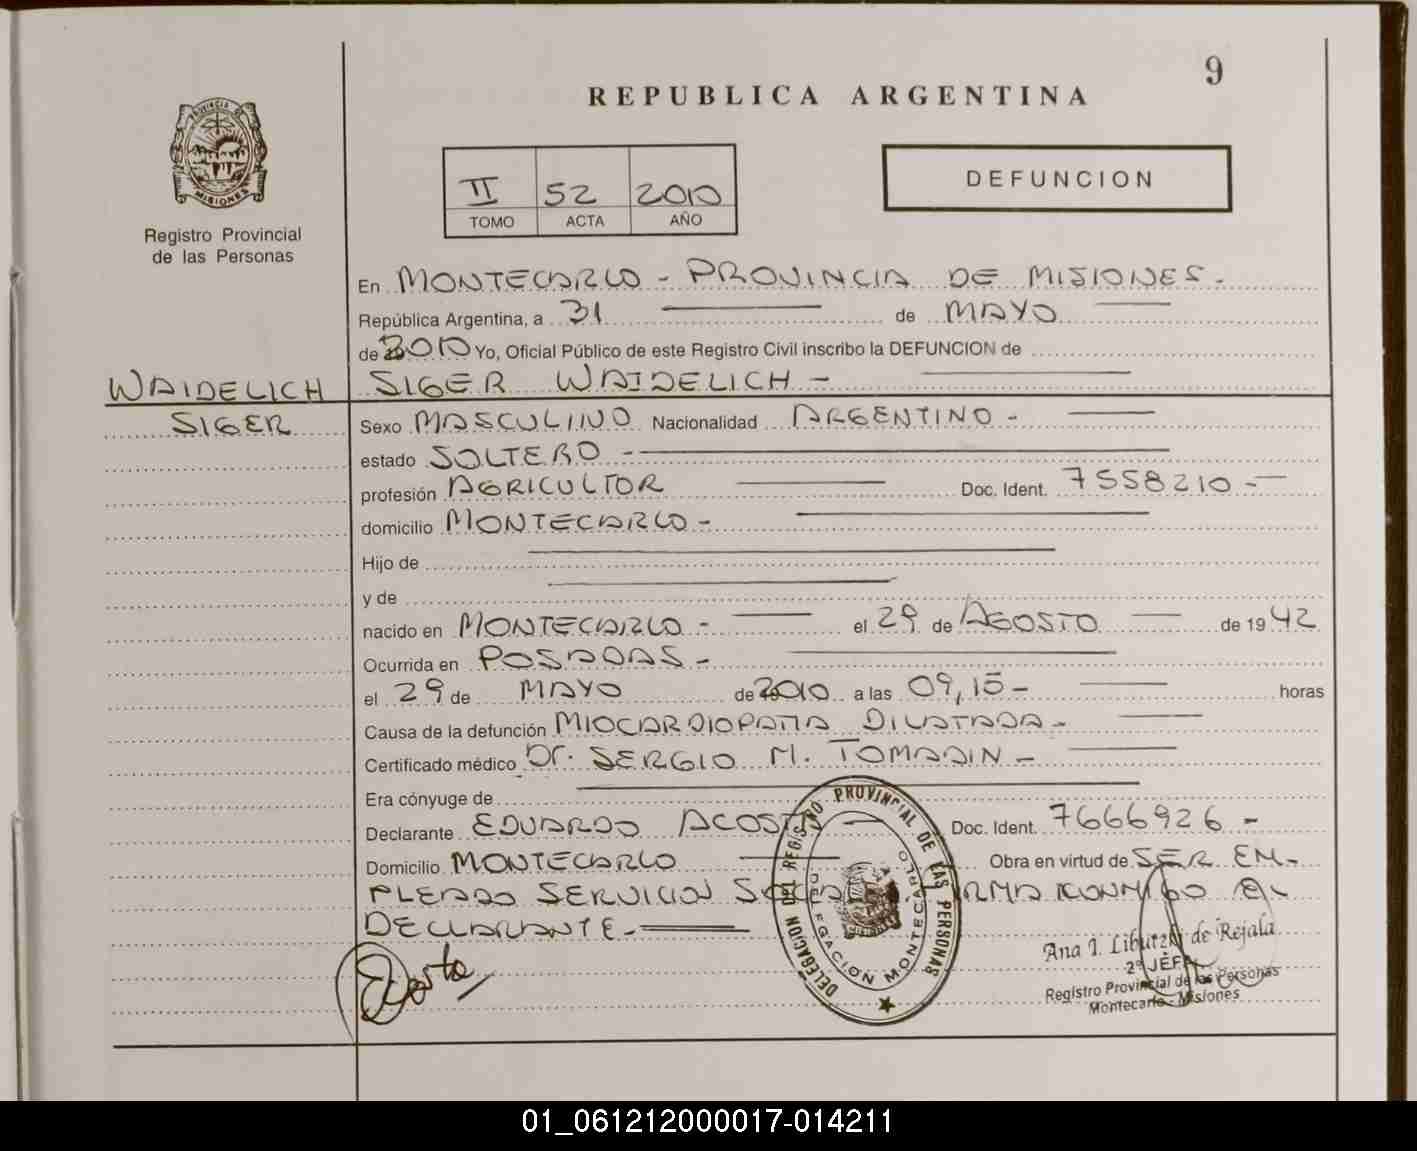 9
REPUBLICA ARGENTINA
PROVINCIA DE
MISIONES
Registro Provincial
de las Personas
II 52 2010
TOMO ACTA AÑO
DEFUNCION
En MONTECARLO - PROVINCIA DE MISIONES -
República Argentina, a 31 de MAYO
de 2010 Yo, Oficial Público de este Registro Civil inscribo la DEFUNCION de
WAIDELICH SIGER WAIDELICH -
SIGER Sexo MASCULINO Nacionalidad ARGENTINO -
estado SOLTERO -
profesión AGRICULTOR Doc. Ident. 7558210 -
domicilio MONTECARLO -
Hijo de
y de
nacido en MONTECARLO - el 29 de AGOSTO de 1942
Ocurrida en POSADAS -
el 29 de MAYO de 2010 a las 09,15 - horas
Causa de la defunción MIOCARDIOPATIA DILATADA -
Certificado médico Dr. SERGIO M. TOMASIN -
Era cónyuge de
Declarante EDUARDO ACOSTA Doc. Ident. 7666926 -
Domicilio MONTECARLO Obra en virtud de SER EM-
PLEADO SERVICIO SOCIAL. FIRMA CONMIGO EL
DECLARANTE -
Acosta
DELEGACION DEL REGISTRO PROVINCIAL DE LAS PERSONAS
DELEGACION MONTECARLO
Ana I. Libutzki de Rejala
2º JEFE
Registro Provincial de las Personas
Montecarlo - Misiones
01_061212000017-014211